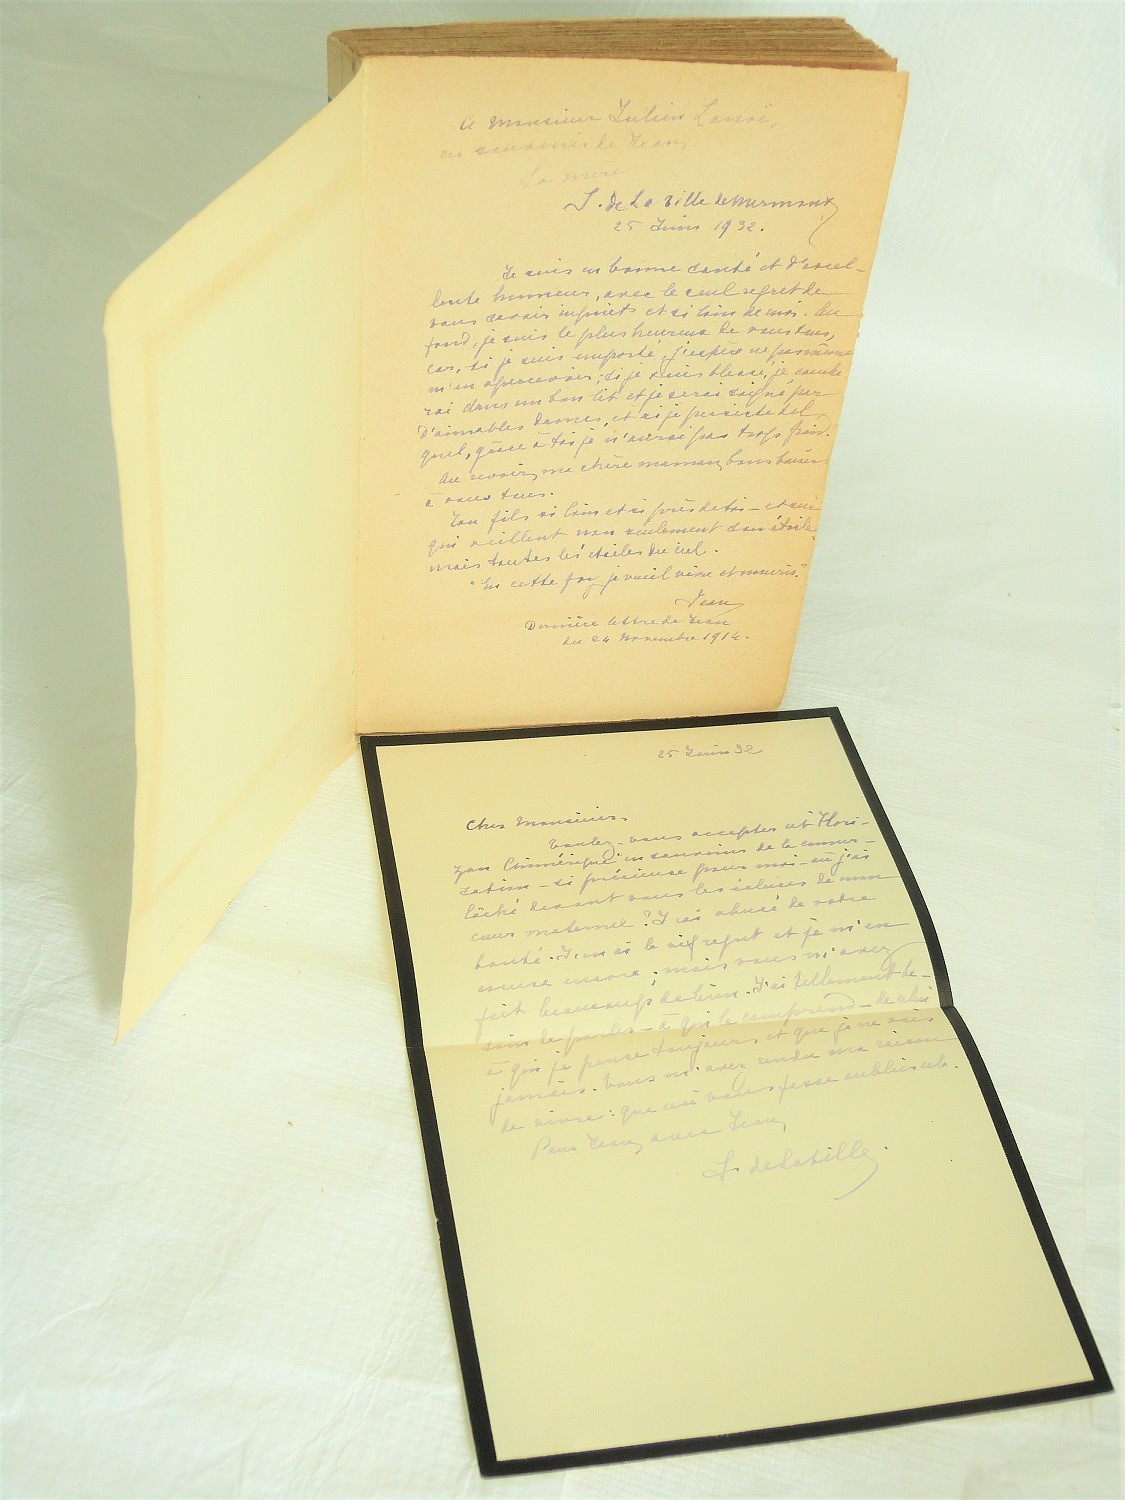 A Monsieur Julien Lanoë,
en souvenir de Jean,
La mère
S. de La Ville de Mirmont
25 Juin 1932.
Je suis en bonne santé et d'excel-
lente humeur, avec le seul regret de
vous savoir inquiets et si loin de moi. Au
fond, je suis le plus heureux de vous tous,
car, si je suis emporté, j'espère ne pas même
m'en apercevoir; si je suis blessé, je couche
rai dans un bon lit et je serai soigné par
d'aimables dames, et si je persiste tel
quel, grâce à toi je n'aurai pas trop froid.
Au revoir, ma chère maman, bons baisers
à vous tous.
Ton fils si loin et si près de toi — et sur
qui veillent non seulement son étoile,
mais toutes les étoiles du ciel.
"En cette foy je vueil vivre et mourir."
Jean
Dernière lettre de Jean
du 24 Novembre 1914.
25 Juin 32
Cher Monsieur,
Voulez-vous accepter cet Hori-
zon Chimérique en souvenir de la conver-
sation — si précieuse pour moi — où j'ai
lâché devant vous les écluses de mon
cœur maternel? J'ai abusé de votre
bonté. J'en ai le vif regret et je m'en
excuse encore; mais vous m'avez
fait beaucoup de bien. J'ai tellement be-
soin de parler — à qui le comprend — de celui
à qui je pense toujours et que je ne vois
jamais. Vous m'avez rendu ma raison
de vivre: que ceci vous fasse oublier cela.
Pour Jean, avec Jean,
S. de La Ville